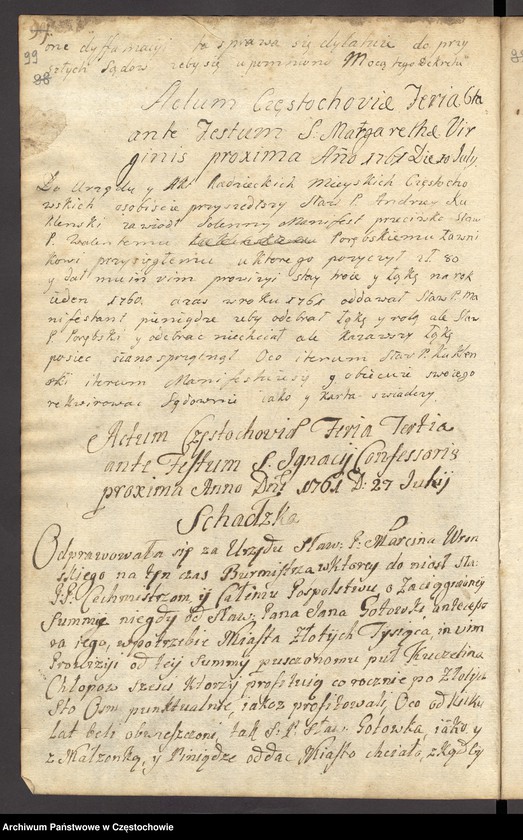 99
88
one dyffamacyi ta sprawa się dylatuie do przy
szłych Sądow żeby się upomniono Mocą tego Dekretu
Actum Częstochoviæ Feria 6ta
ante Festum S. Margarethæ Vir
ginis proxima Año 1761 Die 10 July
Do Urzędu y Radzieckich Mieyskich Częstocho
wskich osobiscie przyszedszy Staw P. Andrzey Ku
klenski zawiodł Solenny Manifest przeciwko Staw
P. Walentemu Porębskiemu Ławni
kowi przysięgłemu u ktorego pozyczył zł 80
y dał mu in vim prowizyi stay troie y Łąkę na rok
ieden 1760. a zas w roku 1761 oddawał Staw P. Ma
nifestant pieniądze zeby odebrał Łąkę y rolą ale Staw
P. Porębski y odebrac niechciał ale kazawszy Łąkę
posiec siano sprzątnął Oco iterum Staw P. Kuklen
ski iterum Manifestuiesię y obiecuie swoiego
rekwirowac Sądownie iako y karta szwiadczy.
Actum Częstochoviæ Feria Tertia
ante Festum S. Ignacij Confessoris
proxima Anno Dni 1761 D: 27 Julij
Schadzka
Odprawowała się za Urzędu Sław: P: Marcina Wron
skiego na tyn czas Burmistrza w ktorey do niosł sta:
P.P. Cechmistrzom y Całemu Pospolstwu o Zaciągnioney
Summie niegdy od Sław: Pana Jana Gołowski antecesso
ra iego, w potrzebie Miasta Złotych Tysiąca, in vim
Prowizyi od tey Summy puszczonemu puł Kuczelina
Chłopow sześci ktorzy profituią co rocznie po Złotych
Sto Osm punktualnie, iakoz profitowali, Oco od kilku
Lat beli obwieszczoni, tak S: P: Sław: Gołowka, iako y
z Małzonką, y Piniądze oddac Miasto chciało, z kąd by
Archiwum Państwowe w Częstochowie